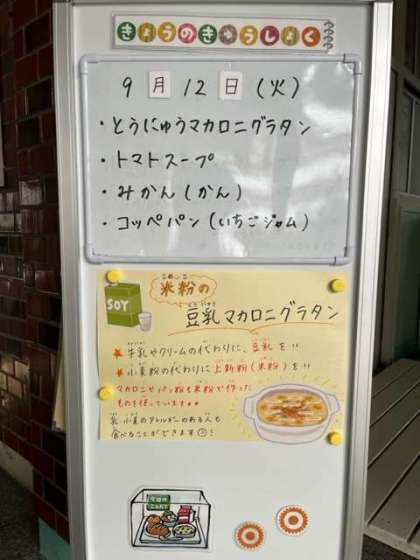 きょうのきゅうしょく
9月12日(火)
・とうにゅうマカロニグラタン
・トマトスープ
・みかん(かん)
・コッペパン(いちごジャム)
米粉の
豆乳マカロニグラタン
SOY
★牛乳やクリームの代わりに、豆乳を!!
★小麦粉の代わりに上新粉(米粉)を!!
マカロニやパン粉も米粉で作った
ものを使っています
乳、小麦のアレルギーのある人も
食べることができます!